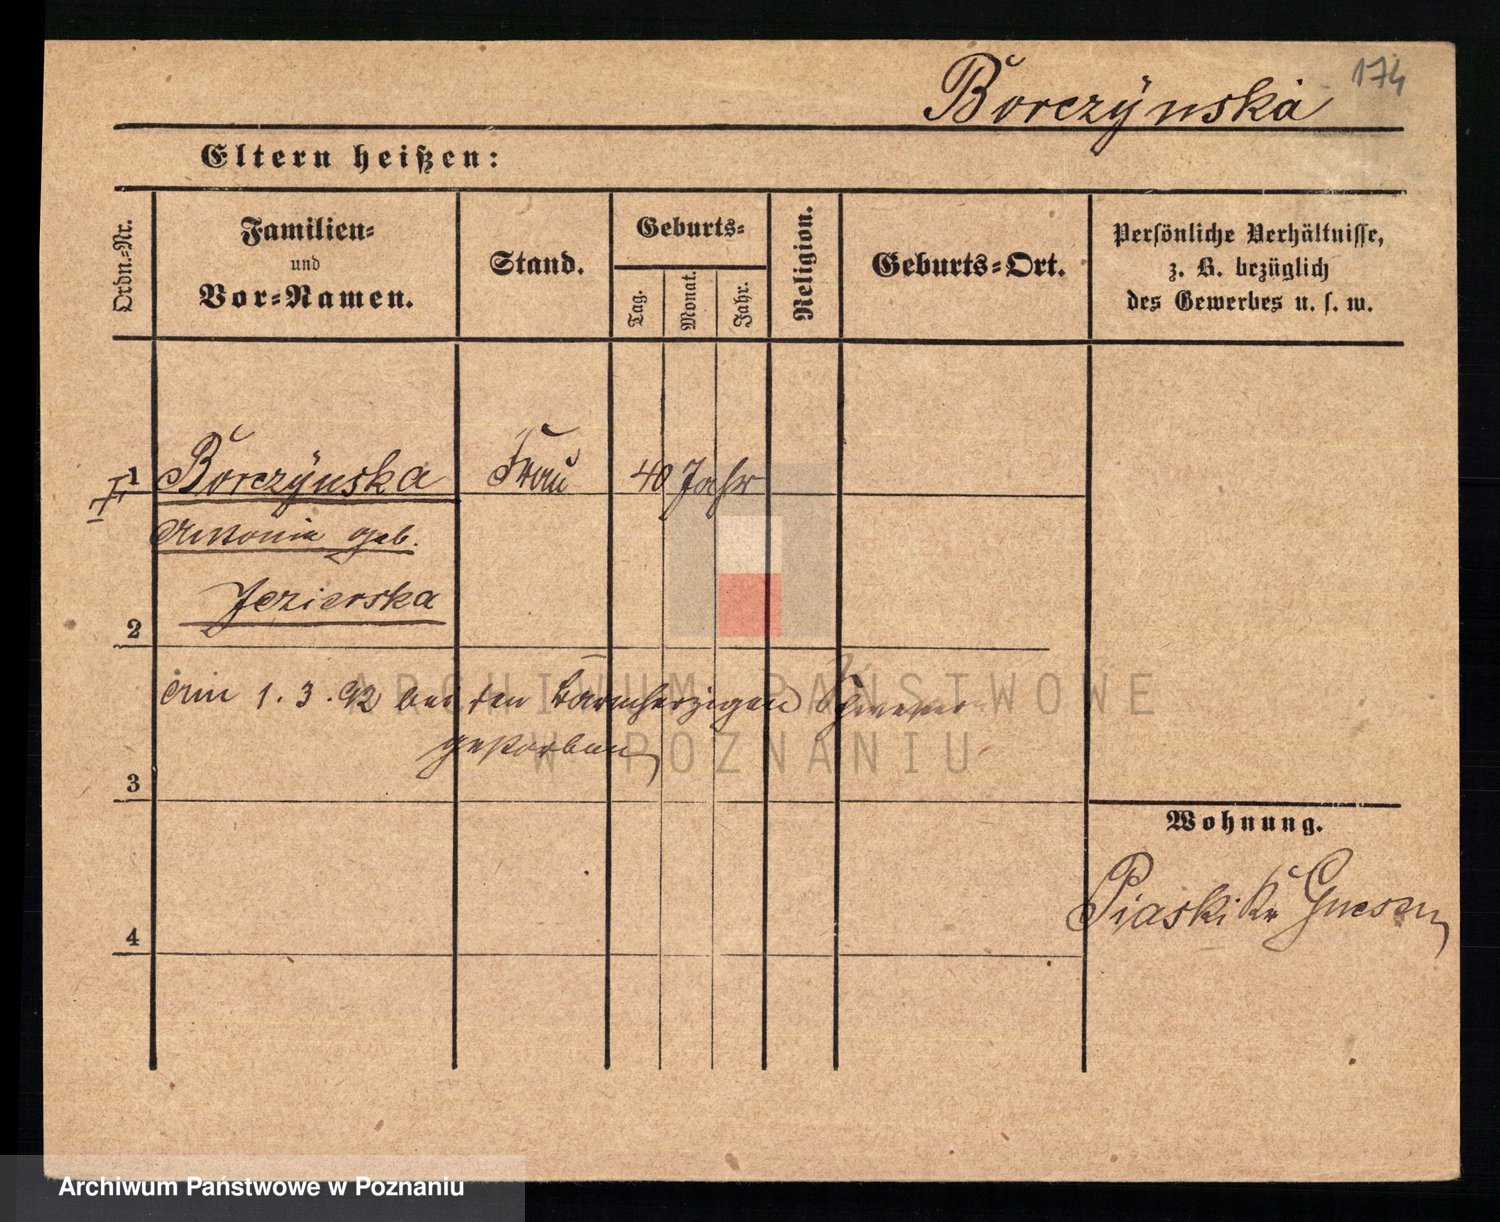 174
Borczÿnska
Eltern heißen:
Ordn.-Nr.
Familien-
und
Vor-Namen.
Stand.
Geburts-
Tag.
Monat.
Jahr.
Religion.
Geburts-Ort.
Persönliche Verhältnisse,
z. B. bezüglich
des Gewerbes u. s. w.
1 Borczÿnska Frau 40 Jahr
Antonia geb.
Jezierska
2
Am 1.3.92 bei den barmherzigen Schwestern
gestorben
3
4
Wohnung.
Piaski Kr Gnesen
ARCHIWUM PAŃSTWOWE
W POZNANIU
Archiwum Państwowe w Poznaniu